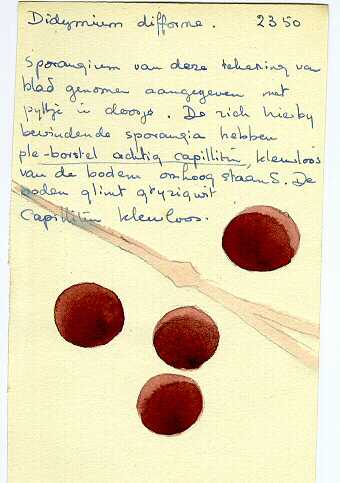 Didymium difforme. 2350
Sporangium van deze tekening van
blad genomen aangegeven met
pyltje in doosje. De zich hierby
bevindende sporangia hebben
achtig capillitium, kleurloos
van de bodem omhoog staand. De
bodem glimt gryzig wit
Capillitium kleurloos.